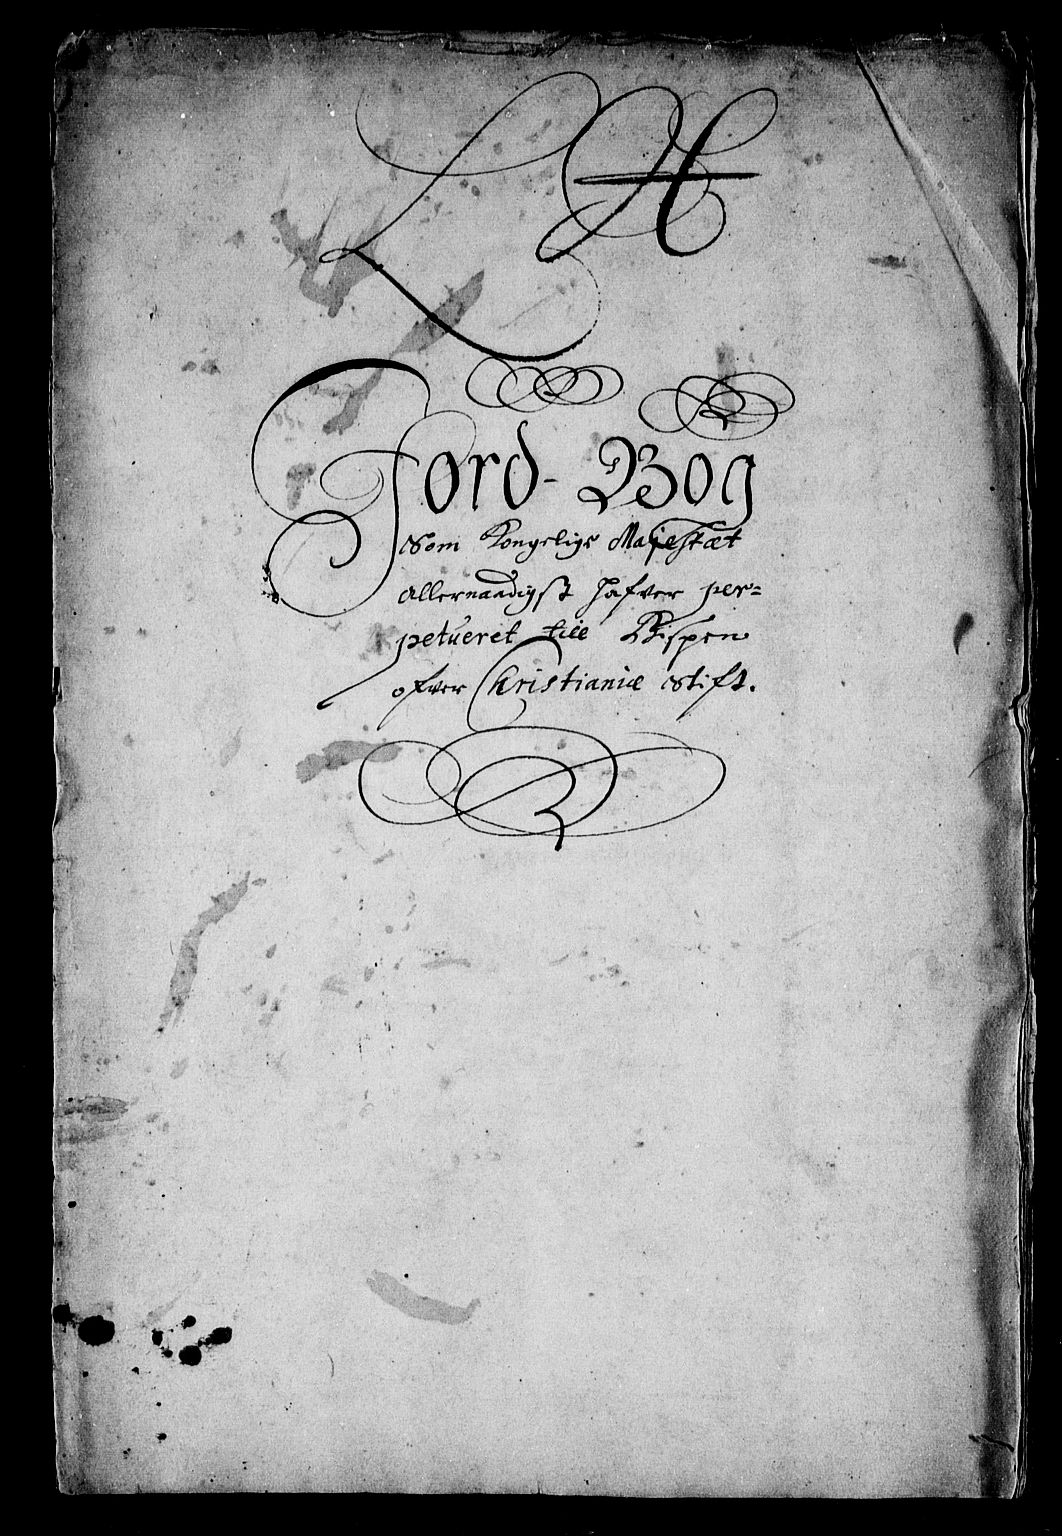 L A
Jord-Bog
Som Kongelige Majestæt
allernaadigst hafver per-
petueret till Bispen
ofver Christianiæ Stift.